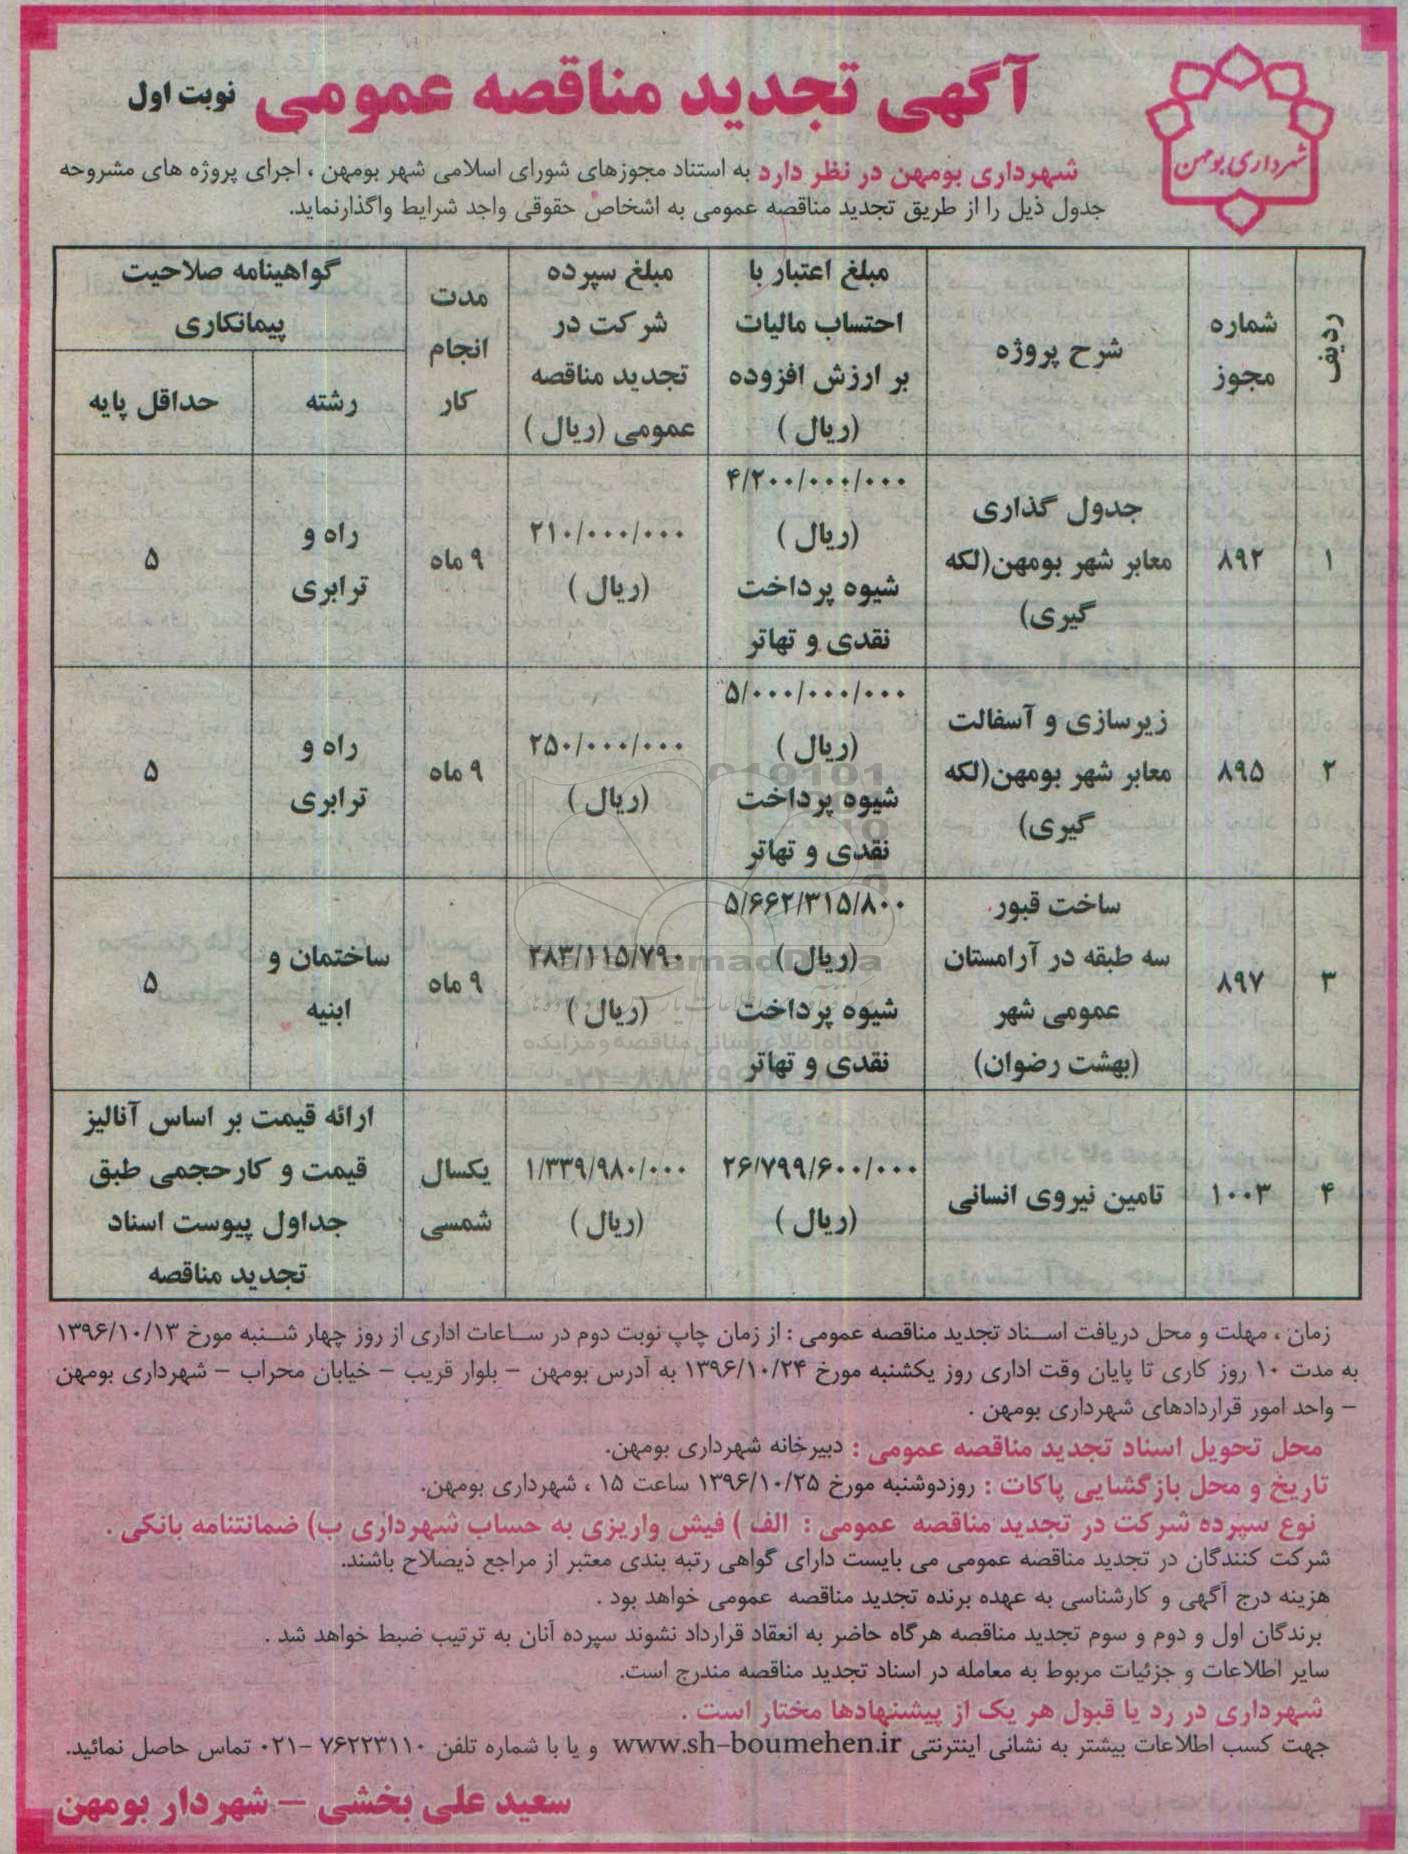 شهرداری بومهن
آگهی تجدید مناقصه عمومی نوبت اول
شهرداری بومهن در نظر دارد به استناد مجوزهای شورای اسلامی شهر بومهن ، اجرای پروژه های مشروحه
جدول ذیل را از طریق تجدید مناقصه عمومی به اشخاص حقوقی واجد شرایط واگذارنماید.
ردیف
شماره
مجوز
شرح پروژه
مبلغ اعتبار با
احتساب مالیات
بر ارزش افزوده
(ریال )
مبلغ سپرده
شرکت در
تجدید مناقصه
عمومی (ریال )
مدت
انجام
کار
گواهینامه صلاحیت
پیمانکاری
رشته
حداقل پایه
۱
۸۹۲
جدول گذاری
معابر شهر بومهن(لکه
گیری)
۴/۲۰۰/۰۰۰/۰۰۰
(ریال )
شیوه پرداخت
نقدی و تهاتر
۲۱۰/۰۰۰/۰۰۰
(ریال )
۹ ماه
راه و
ترابری
۵
۲
۸۹۵
زیرسازی و آسفالت
معابر شهر بومهن(لکه
گیری)
۵/۰۰۰/۰۰۰/۰۰۰
(ریال )
شیوه پرداخت
نقدی و تهاتر
۲۵۰/۰۰۰/۰۰۰
(ریال )
۹ ماه
راه و
ترابری
۵
۳
۸۹۷
ساخت قبور
سه طبقه در آرامستان
عمومی شهر
(بهشت رضوان)
۵/۶۶۲/۳۱۵/۸۰۰
(ریال )
شیوه پرداخت
نقدی و تهاتر
۲۸۳/۱۱۵/۷۹۰
(ریال )
۹ ماه
ساختمان و
ابنیه
۵
۴
۱۰۰۳
تامین نیروی انسانی
۲۶/۷۹۹/۶۰۰/۰۰۰
(ریال )
۱/۳۳۹/۹۸۰/۰۰۰
(ریال )
یکسال
شمسی
ارائه قیمت بر اساس آنالیز
قیمت و کارحجمی طبق
جداول پیوست اسناد
تجدید مناقصه
پایگاه اطلاع رسانی مناقصه و مزایده
زمان ، مهلت و محل دریافت اسناد تجدید مناقصه عمومی : از زمان چاپ نوبت دوم در ساعات اداری از روز چهار شنبه مورخ ۱۳۹۶/۱۰/۱۳
به مدت ۱۰ روز کاری تا پایان وقت اداری روز یکشنبه مورخ ۱۳۹۶/۱۰/۲۴ به آدرس بومهن - بلوار قریب - خیابان محراب - شهرداری بومهن
- واحد امور قراردادهای شهرداری بومهن .
محل تحویل اسناد تجدید مناقصه عمومی : دبیرخانه شهرداری بومهن.
تاریخ و محل بازگشایی پاکات : روزدوشنبه مورخ ۱۳۹۶/۱۰/۲۵ ساعت ۱۵ ، شهرداری بومهن.
نوع سپرده شرکت در تجدید مناقصه عمومی : الف ) فیش واریزی به حساب شهرداری ب) ضمانتنامه بانکی .
شرکت کنندگان در تجدید مناقصه عمومی می بایست دارای گواهی رتبه بندی معتبر از مراجع ذیصلاح باشند.
هزینه درج آگهی و کارشناسی به عهده برنده تجدید مناقصه عمومی خواهد بود .
برندگان اول و دوم و سوم تجدید مناقصه هرگاه حاضر به انعقاد قرارداد نشوند سپرده آنان به ترتیب ضبط خواهد شد .
سایر اطلاعات و جزئیات مربوط به معامله در اسناد تجدید مناقصه مندرج است.
شهرداری در رد یا قبول هر یک از پیشنهادها مختار است .
جهت کسب اطلاعات بیشتر به نشانی اینترنتی www.sh-boumehen.ir و یا با شماره تلفن ۷۶۲۲۳۱۱۰ -۰۲۱ تماس حاصل نمائید.
سعید علی بخشی - شهردار بومهن